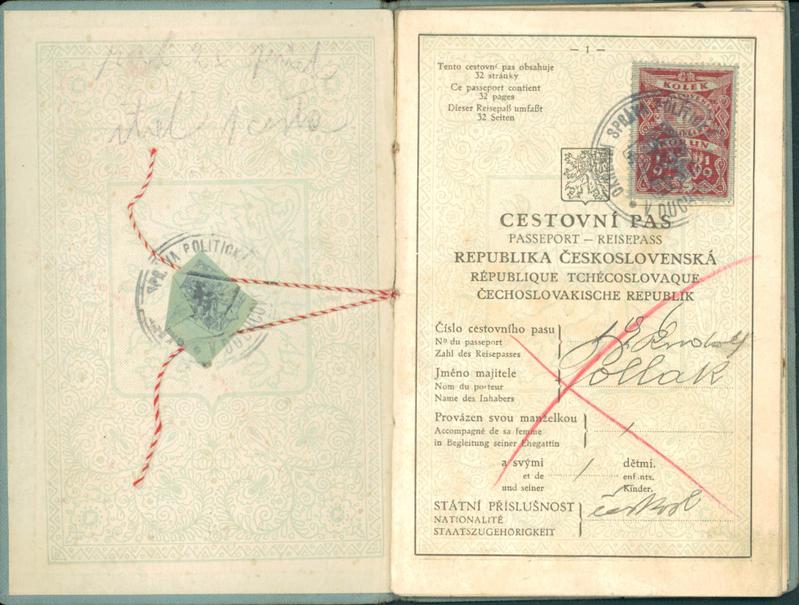 SPRÁVA POLITICKÁ
— 1 —
Tento cestovní pas obsahuje
32 stránky
Ce passeport contient
32 pages
Dieser Reisepaß umfaßt
32 Seiten
KOLEK
KORUN
OKRESNÍ SPRÁVA POLITICKÁ
V DUCH
CESTOVNÍ PAS
PASSEPORT — REISEPASS
REPUBLIKA ČESKOSLOVENSKÁ
RÉPUBLIQUE TCHÉCOSLOVAQUE
ČECHOSLOVAKISCHE REPUBLIK
Číslo cestovního pasu
No du passeport
Zahl des Reisepasses
Rudolf
Jméno majitele
Nom du porteur
Name des Inhabers
Pollak
Provázen svou manželkou
Accompagné de sa femme
in Begleitung seiner Ehegattin
a svými / dětmi.
et de enfants.
und seiner Kinder.
STÁTNÍ PŘÍSLUŠNOST
NATIONALITÉ
STAATSZUGEHÖRIGKEIT
českosl